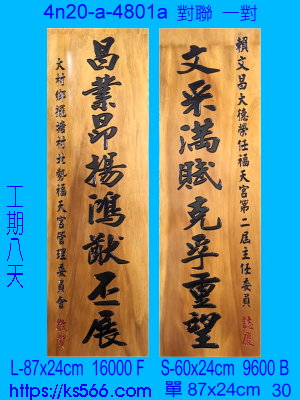 4n20-a-4801a 對聯 一對
賴文昌大德榮任福天宮第二屆主任委員誌慶
文采滿賦克孚重望
昌業昂揚鴻猷丕展
大村鄉擺塘村北勢福天宮管理委員會敬賀
工期八天
L-87x24cm 16000 F S-60x24cm 9600 B
https://ks566.com/ 單 87x24cm 30